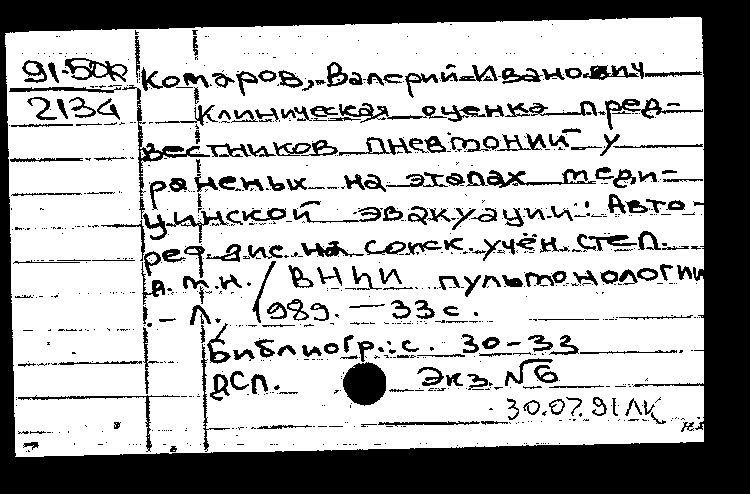 91-50к
2134
Комаров, Валерий Иванович
Клиническая оценка пред-
вестников пневмоний у
раненых на этапах меди-
цинской эвакуации: Авто-
реф дис. на соиск. учён. степ.
д.м.н. / ВНИИ пульмонологии
.- Л., 1989. - 33 с.
Библиогр.: с. 30-33
ДСП. Экз. №6
30.07.91 ЛК